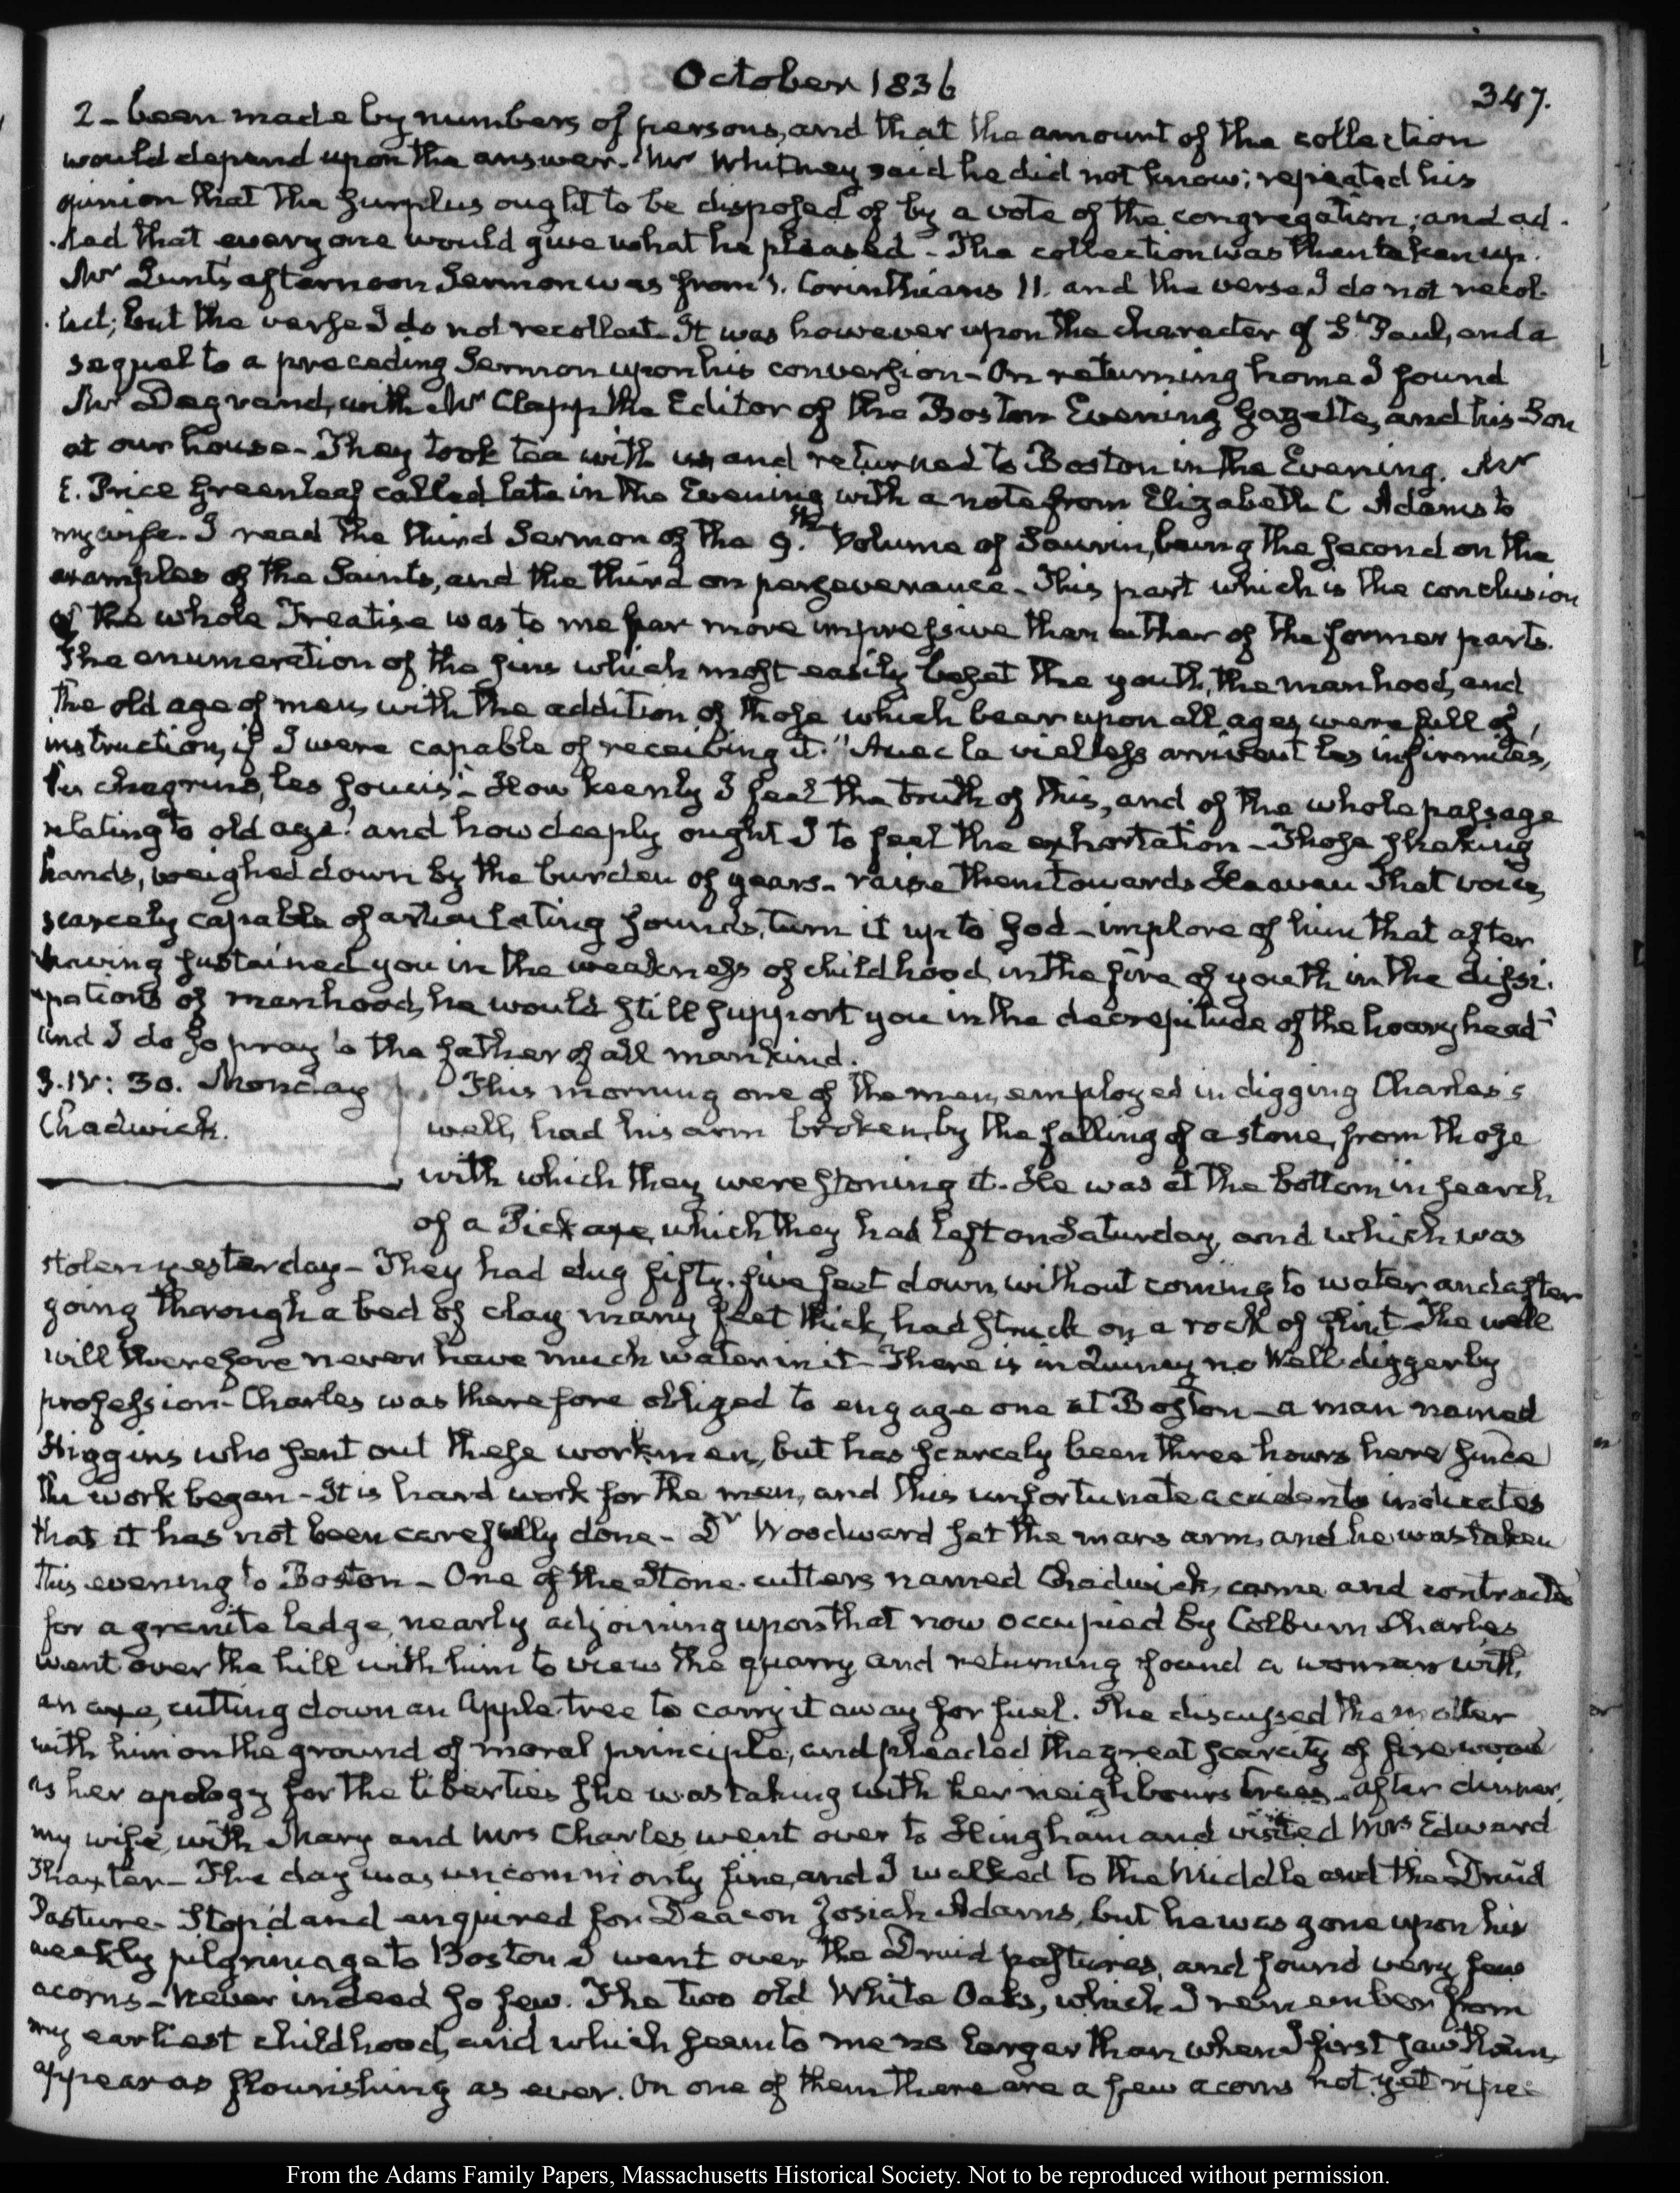 October 1836
347.
2 - been made by numbers of persons, and that the amount of the collection
would depend upon the answer. Mr Whitney said he did not know; repeated his
opinion that the surplus ought to be disposed of by a vote of the congregation; and ad-
-ded that every one would give what he pleased - The collection was then taken up.
Mr Lunt's afternoon Sermon was from 1. Corinthians 11. and the verse I do not recol-
-lect; but the verse I do not recollect. It was however upon the character of St Paul, and a
sequel to a preceding Sermon upon his conversion - On returning home I found
Mr Degrand, with Mr Clapp the Editor of the Boston Evening Gazette, and his Son
at our house - They took tea with us, and returned to Boston in the Evening. Mr
E. Price Greenleaf called late in the Evening with a note from Elizabeth C Adams to
my wife. I read the third Sermon of the 9th Volume of Saurin, being the second on the
examples of the Saints, and the third on perseverance - This part which is the conclusion
of the whole Treatise was to me far more impressive than either of the former parts.
The enumeration of the sins which most easily beset the youth, the manhood, and
the old age of men, with the addition of those which bear upon all ages, were full of
instruction, if I were capable of receiving it. "Avec la vielless arrivent les infirmites,
les chagrins, les soucis" - How keenly I feel the truth of this, and of the whole passage
relating to old age! and how deeply ought I to feel the exhortation - Those shaking
hands, weighed down by the burden of years - raise them towards Heaven That voice,
scarcely capable of articulating sounds, turn it up to God - implore of him that after
having sustained you in the weakness of childhood, in the fire of youth in the dissi-
-pations of manhood, he would still support you in the decrepitude of the hoary head"
And I do so pray to the father of all mankind.
3. IV: 30. Monday
Chadwick.
This morning one of the men, employed in digging Charles's
well, had his arm broken, by the falling of a stone, from those
with which they were stoning it. He was at the bottom in search
of a Pick axe, which they had left on Saturday, and which was
stolen yesterday - They had dug fifty-five feet down, without coming to water, and after
going through a bed of clay many feet thick, had struck on a rock of flint - The well
will therefore never have much water in it - There is in Quincy no Well-digger by
profession - Charles was therefore obliged to engage one at Boston - a man named
Higgins who sent out these workmen, but has scarcely been three hours here since
the work began - It is hard work for the men, and this unfortunate accident indicates
that it has not been carefully done - Dr Woodward set the mans arm, and he was taken
this evening to Boston - One of the Stone-cutters named Chadwick, came and contracted
for a granite ledge, nearly adjoining upon that now occupied by Colburn Charles
went over the hill with him to view the quarry, and returning found a woman with
an axe, cutting down an Apple-tree to carry it away for fuel. She discussed the matter
with him on the ground of moral principle, and pleaded the great scarcity of fire wood
as her apology for the liberties she was taking with her neighbours trees - after dinner,
my wife, with Mary and Mrs Charles, went over to Hingham and visited Mrs Edward
Thaxter - The day was uncommonly fine, and I walked to the Middle and the Druid
Pasture - Stop'd and enquired for Deacon Josiah Adams, but he was gone upon his
weekly pilgrimage to Boston I went over the Druid pastures, and found very few
acorns - Never indeed so few. The two old White Oaks, which I remember from
my earliest childhood, and which seem to me no larger than when I first saw them,
appear as flourishing as ever. On one of them there are a few acorns not yet ripe -
From the Adams Family Papers, Massachusetts Historical Society. Not to be reproduced without permission.